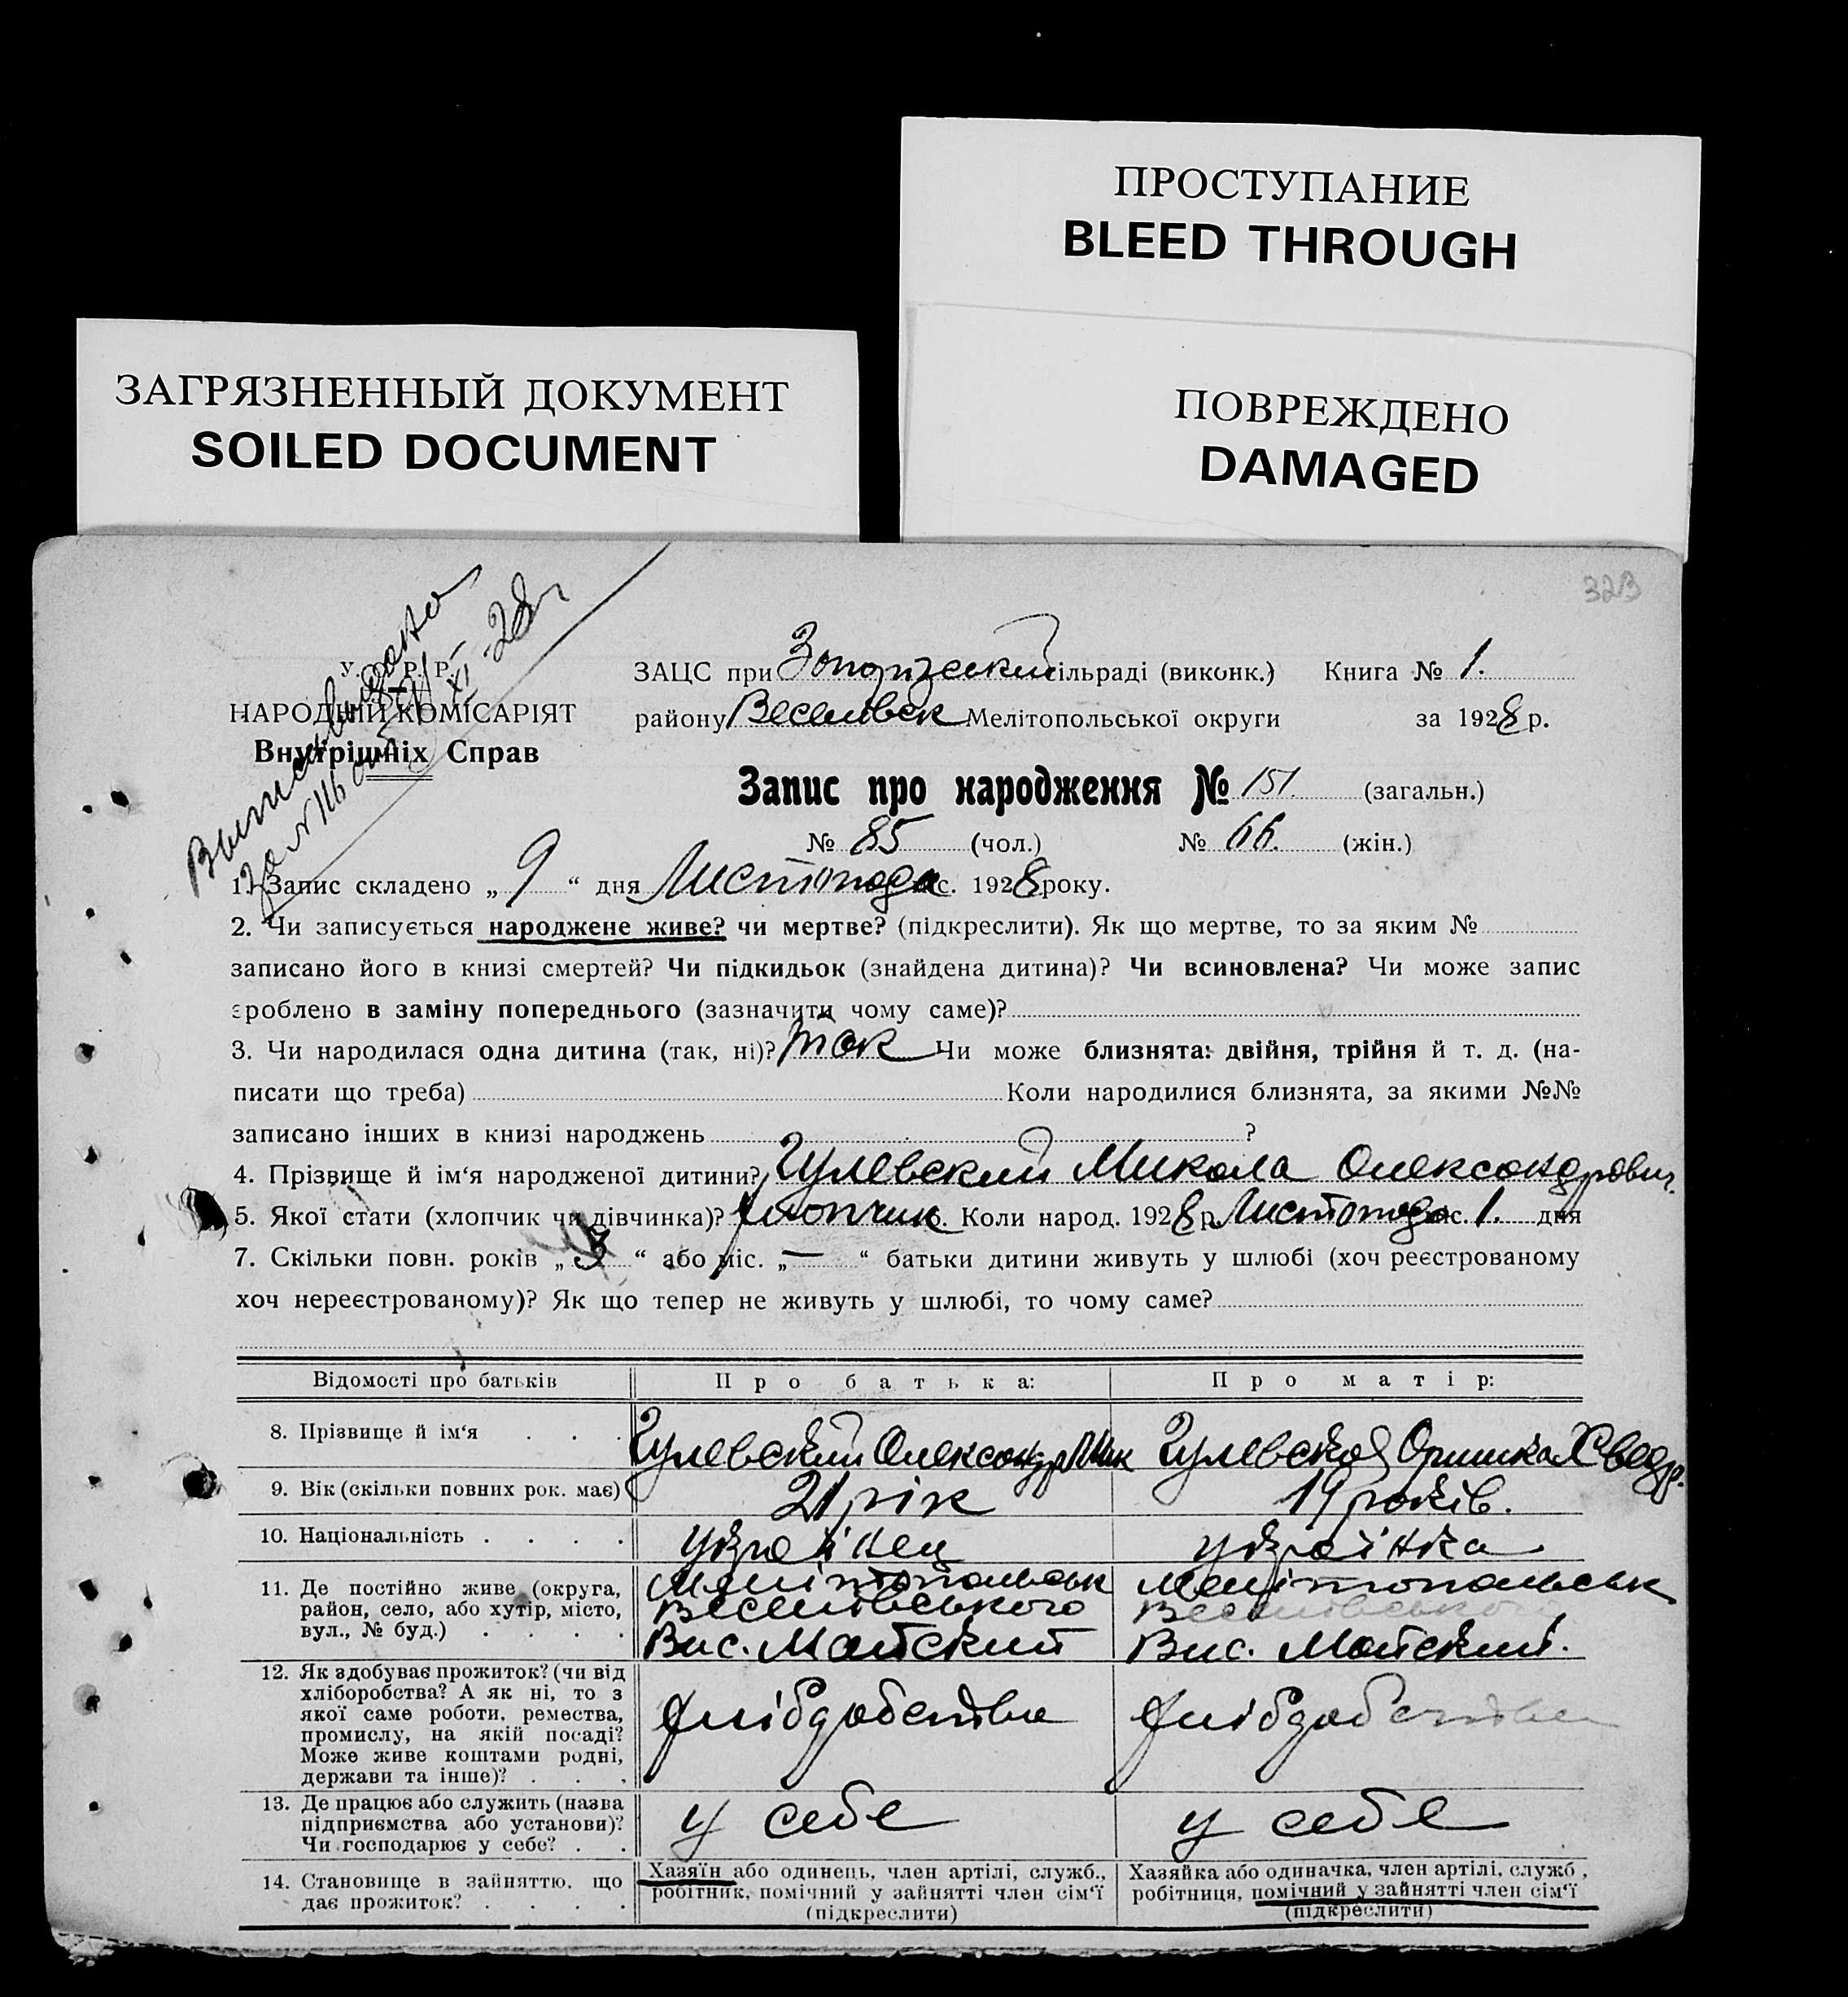 ПРОСТУПАНИЕ
BLEED THROUGH
ЗАГРЯЗНЕННЫЙ ДОКУМЕНТ
SOILED DOCUMENT
ПОВРЕЖДЕНО
DAMAGED
323
У. С. Р. Р.
НАРОДНІЙ КОМІСАРІЯТ
Внутрішніх Справ
ЗАЦС при Запорізський сільраді (виконк.) Книга № 1.
району Веселівск Мелітопольської округи за 1928 р.
Запис про народження № 151. (загальн.)
№ 85 (чол.) № 66. (жін.)
1. Запис складено „ 9 “ дня Листопада міс. 1928 року.
2. Чи записується народжене живе? чи мертве? (підкреслити). Як що мертве, то за яким №
записано його в книзі смертей? Чи підкидьок (знайдена дитина)? Чи всиновлена? Чи може запис
зроблено в заміну попереднього (зазначити чому саме)?
3. Чи народилася одна дитина (так, ні)? так Чи може близнята: двійня, трійня й т. д. (на-
писати що треба) Коли народилися близнята, за якими №№
записано інших в книзі народжень ?
4. Прізвище й ім‘я народженої дитини? Гулевский Микола Олександрович.
5. Якої стати (хлопчик чи дівчинка)? Хлопчик 6. Коли народ. 1928 р. Листопада міс. 1. дня
7. Скільки повн. років „ 3 “ або міс. „ — “ батьки дитини живуть у шлюбі (хоч реєстрованому
хоч нереєстрованому)? Як що тепер не живуть у шлюбі, то чому саме?
Відомості про батьків Про батька: Про матір:
8. Прізвище й ім‘я . . . Гулевский Олександр Гулевская Оришка Хведр.
9. Вік (скільки повних рок. має) 21 рік 19 років.
10. Національність . . . . українец українка
11. Де постійно живе (округа, Мелітопольськ Мелітопольськ
район, село, або хутір, місто, Веселівського Веселівського
вул., № буд.) . . . . Вис. Майский Вис. Майский.
12. Як здобуває прожиток? (чи від
хліборобства? А як ні, то з
якої саме роботи, ремества, хлібдобство хлібдобство
промислу, на якій посаді?
Може живе коштами родні,
держави та інше)? . . .
13. Де працює або служить (назва
підприємства або установи)? у себе у себе
Чи господарює у себе? . .
14. Становище в зайняттю, що Хазяїн або одинець, член артілі, служб., Хазяйка або одиначка, член артілі, служб.,
дає прожиток? . . . . робітник, помічний у зайнятті член сім‘ї робітниця, помічний у зайнятті член сім‘ї
(підкреслити) (підкреслити)